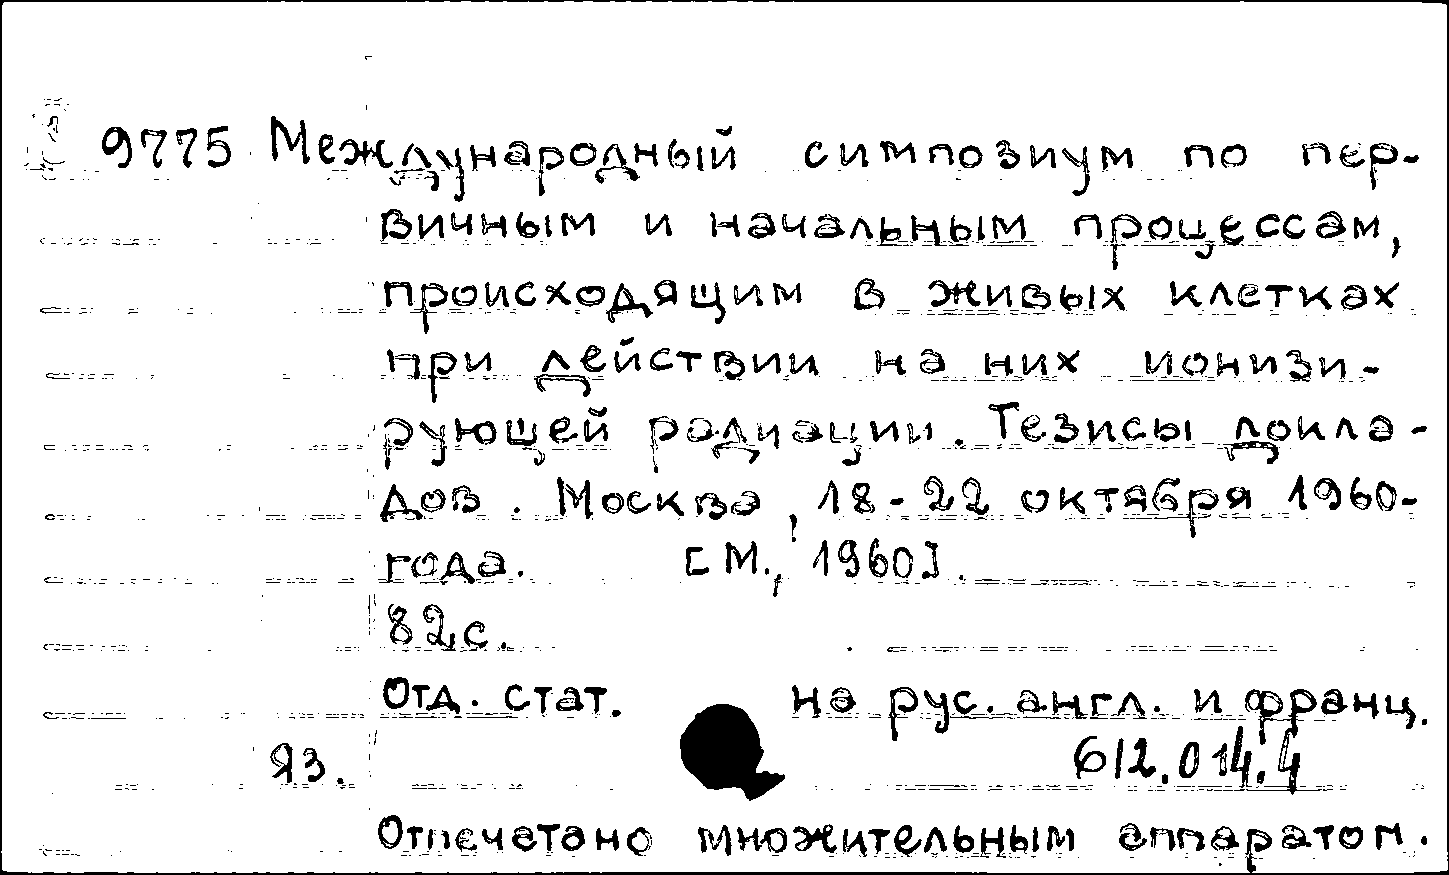 9775 Международный симпозиум по пер-
вичным и начальным процессам,
происходящим в живых клетках
при действии на них ионизи-
рующей радиации. Тезисы докла-
дов. Москва, 18-22 октября 1960-
года. [М., 1960].
82с.
Отд. стат. на рус. англ. и франц.
Яз. 612.014.4
Отпечатано множительным аппаратом.